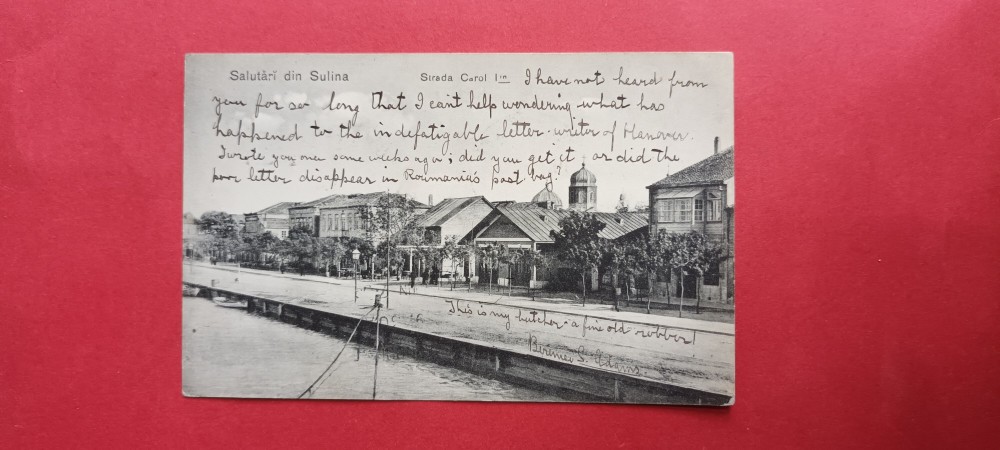 Salutări din Sulina
Strada Carol Iin I have not heard from
you for so long that I can't help wondering what has
happened to the indefatigable letter-writer of Hanover.
I wrote you once some weeks ago; did you get it or did the
poor letter disappear in Roumania's post bag?
This is my butcher - a fine old robber!
S. Adams.